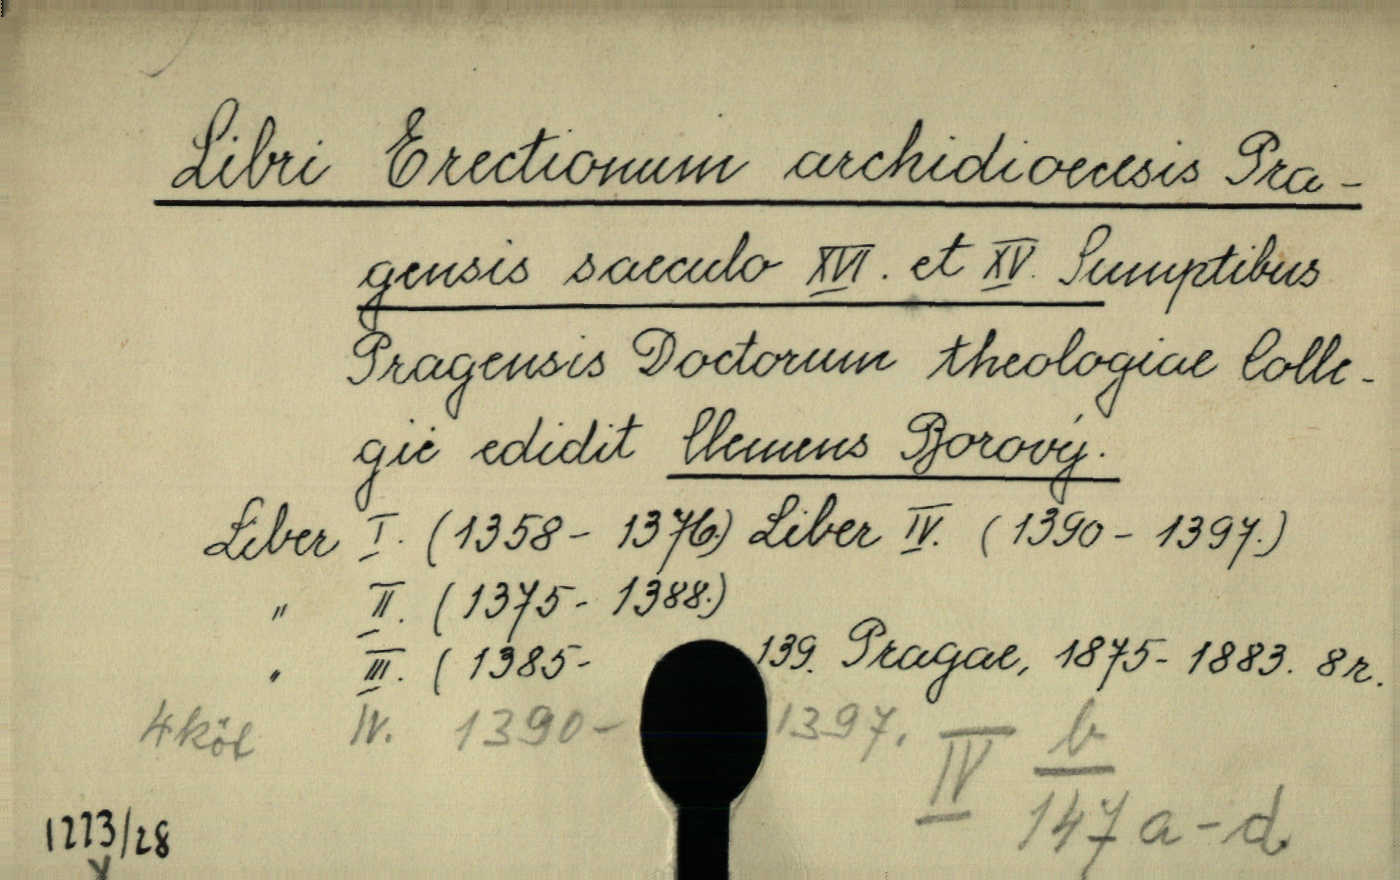 Libri Erectionum archidioecesis Pra-
gensis saeculo XVI. et XV. Sumptibus
Pragensis Doctorum theologiae Colle-
gii edidit Clemens Borový.
Liber I. (1358 - 1376.) Liber IV. (1390 - 1397.)
" II. (1375 - 1388.)
" III. (1385 - 139. Pragae, 1875 - 1883. 8r.
4 köt IV. 1390 - 1397.
IV b
147 a - d
1223/28